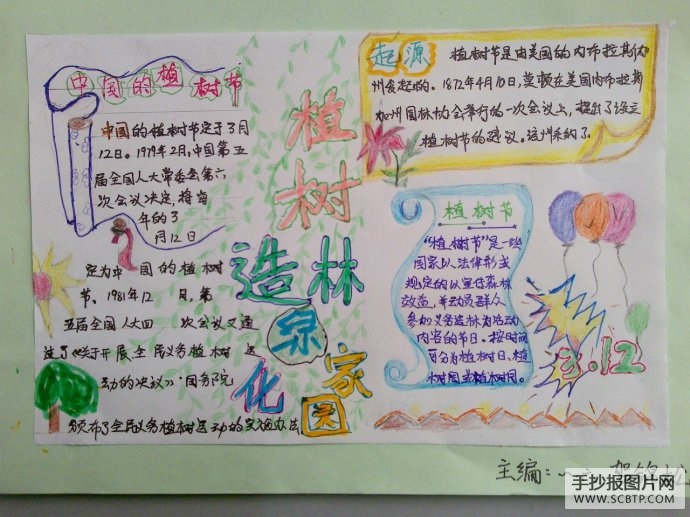 中国的植树节
中国的植树节定于3月
12日。1979年2月,中国第五
届全国人大常委会第六
次会议决定,将每
年的3
月12日
定为中国的植树
节。1981年12月,第
五届全国人大四次会议又通
过了《关于开展全民义务植树运
动的决议》。国务院
颁布了全民义务植树运动的实施办法
植树
造林
绿
化
家
园
起源
植树节是由美国的内布拉斯加
州发起的。1872年4月10日,莫顿在美国内布拉斯
加州园林协会举行的一次会议上,提出了设立
植树节的建议。该州采纳了
植树节
“植树节”是一些
国家以法律形式
规定的以宣传森林
效益,并动员群众
参加义务造林为活动
内容的节日。按时间
可分为植树日、植
树周或植树月。
3.12
主编:
手抄报图片网
WWW.SCBTP.COM